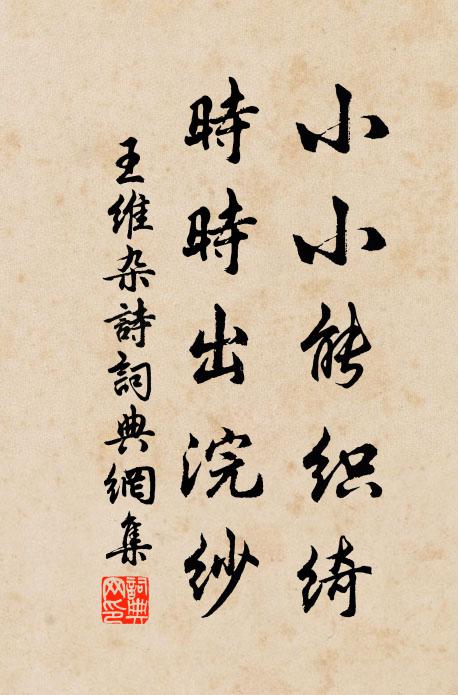 小小能织绮
時時出浣紗
王维杂詩詞典網集
詞典網印